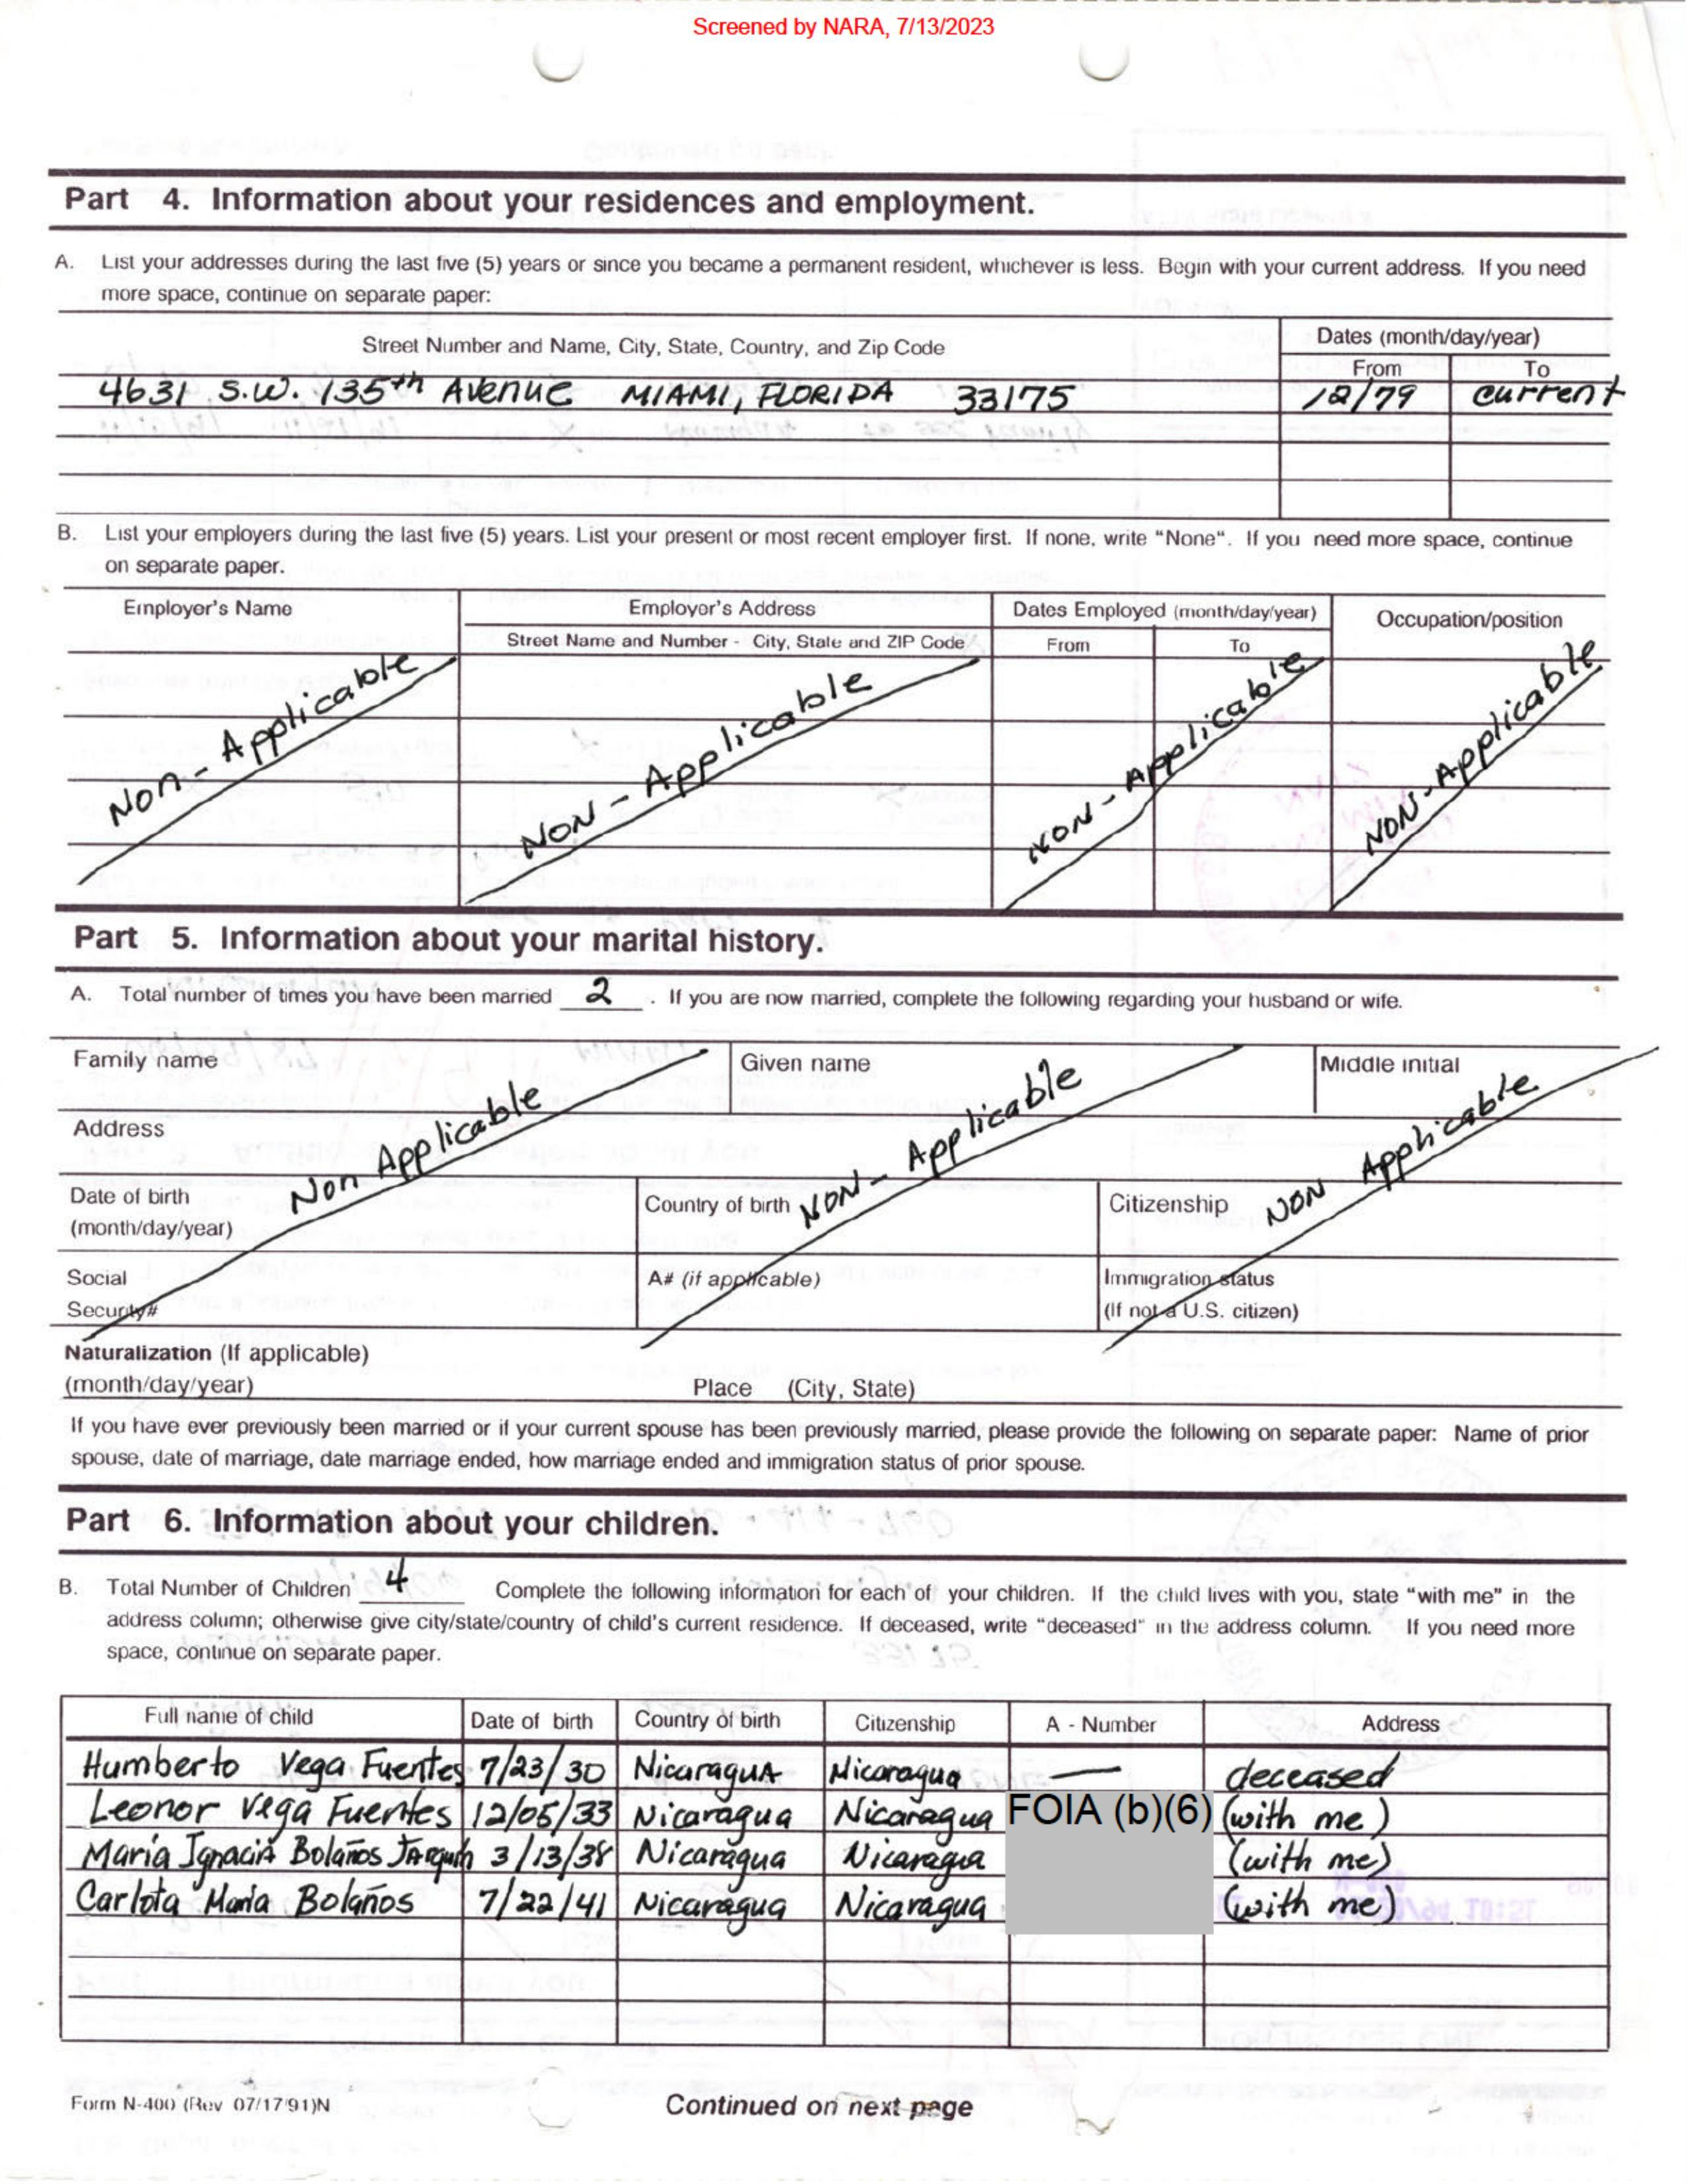 Screened by NARA, 7/13/2023
Part 4. Information about your residences and employment.
A. List your addresses during the last five (5) years or since you became a permanent resident, whichever is less. Begin with your current address. If you need
more space, continue on separate paper:
Street Number and Name, City, State, Country, and Zip Code
Dates (month/day/year)
From To
4631 S.W. 135th Avenue MIAMI, FLORIDA 33175 12/79 current
B. List your employers during the last five (5) years. List your present or most recent employer first. If none, write "None". If you need more space, continue
on separate paper.
Employer's Name Employer's Address Dates Employed (month/day/year) Occupation/position
Street Name and Number - City, State and ZIP Code From To
Non - Applicable NON - Applicable NON - Applicable NON - Applicable
Part 5. Information about your marital history.
A. Total number of times you have been married 2 . If you are now married, complete the following regarding your husband or wife.
Family name Given name Middle initial
Address
Non Applicable NON - Applicable NON Applicable
Date of birth Country of birth Citizenship
(month/day/year)
Social A# (if applicable) Immigration status
Security# (If not a U.S. citizen)
Naturalization (If applicable)
(month/day/year) Place (City, State)
If you have ever previously been married or if your current spouse has been previously married, please provide the following on separate paper: Name of prior
spouse, date of marriage, date marriage ended, how marriage ended and immigration status of prior spouse.
Part 6. Information about your children.
B. Total Number of Children 4 Complete the following information for each of your children. If the child lives with you, state "with me" in the
address column; otherwise give city/state/country of child's current residence. If deceased, write "deceased" in the address column. If you need more
space, continue on separate paper.
Full name of child Date of birth Country of birth Citizenship A - Number Address
Humberto Vega Fuentes 7/23/30 Nicaragua Nicaragua — deceased
Leonor Vega Fuentes 12/05/33 Nicaragua Nicaragua FOIA (b)(6) (with me)
María Ignacia Bolaños Jarquin 3/13/38 Nicaragua Nicaragua (with me)
Carlota María Bolaños 7/22/41 Nicaragua Nicaragua (with me)
Form N-400 (Rev 07/17/91)N Continued on next page